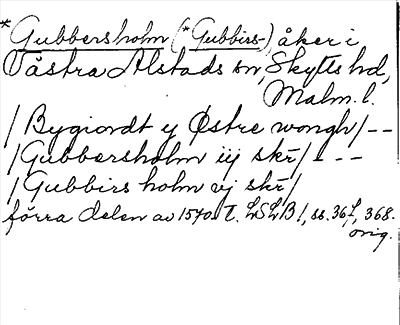 *Gubbersholm (*Gubbirs-), åker i
Västra Alstads sn, Skytts hd,
Malm. l.
/ Bygiordt y Østre wongh / - -
/ Gubbersholm iij skr̄ / - - -
/ Gubbirs holm vj skr̄ /
förra delen av 1570. t. LSLB 1, ss. 367, 368.
orig.